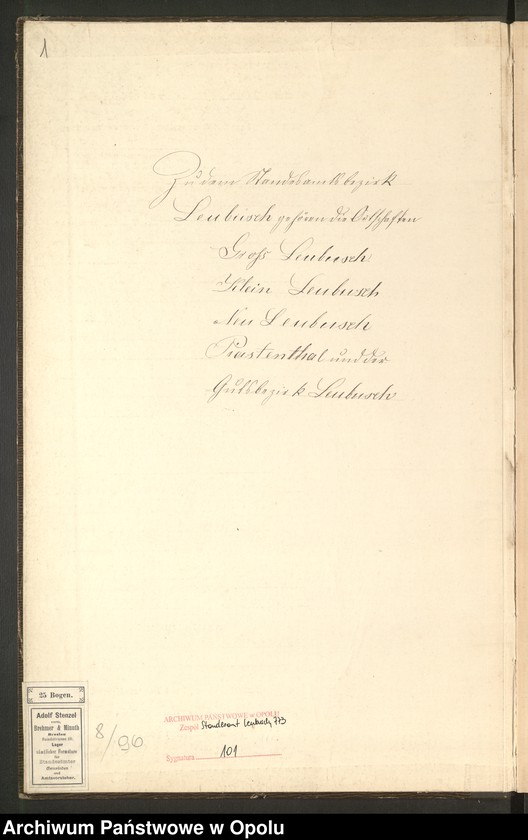 1
Zu dem Standesamtsbezirk
Leubusch gehören die Ortschaften
Groß Leubusch
Klein Leubusch
Neu Leubusch
Piastenthal und der
Gutsbezirk Leubusch
25 Bogen.
Adolf Stenzel
vorm.
Brehmer & Minuth
Breslau
Lager
sämtlicher Formulare
für
Standesämter
Gemeinden
und
Amtsvorsteher.
8/96
ARCHIWUM PAŃSTWOWE w OPOLU
Zespół Standesamt Leubusch 773
Sygnatura 101
Archiwum Państwowe w Opolu